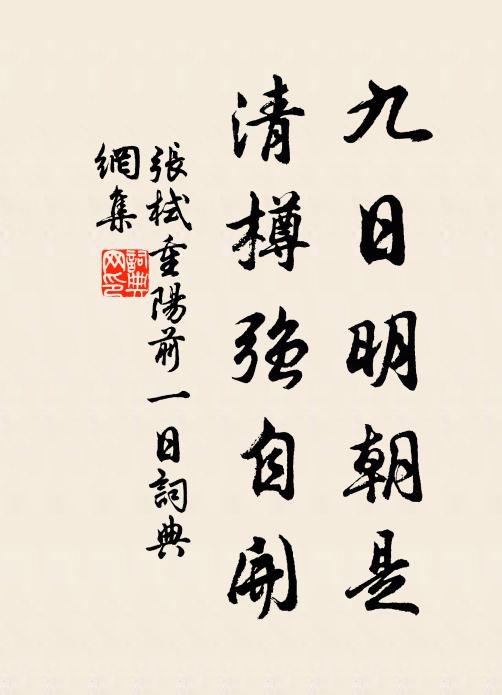 九日明朝是
清樽強自開
張栻重陽前一日詞典
網集
詞典
网印